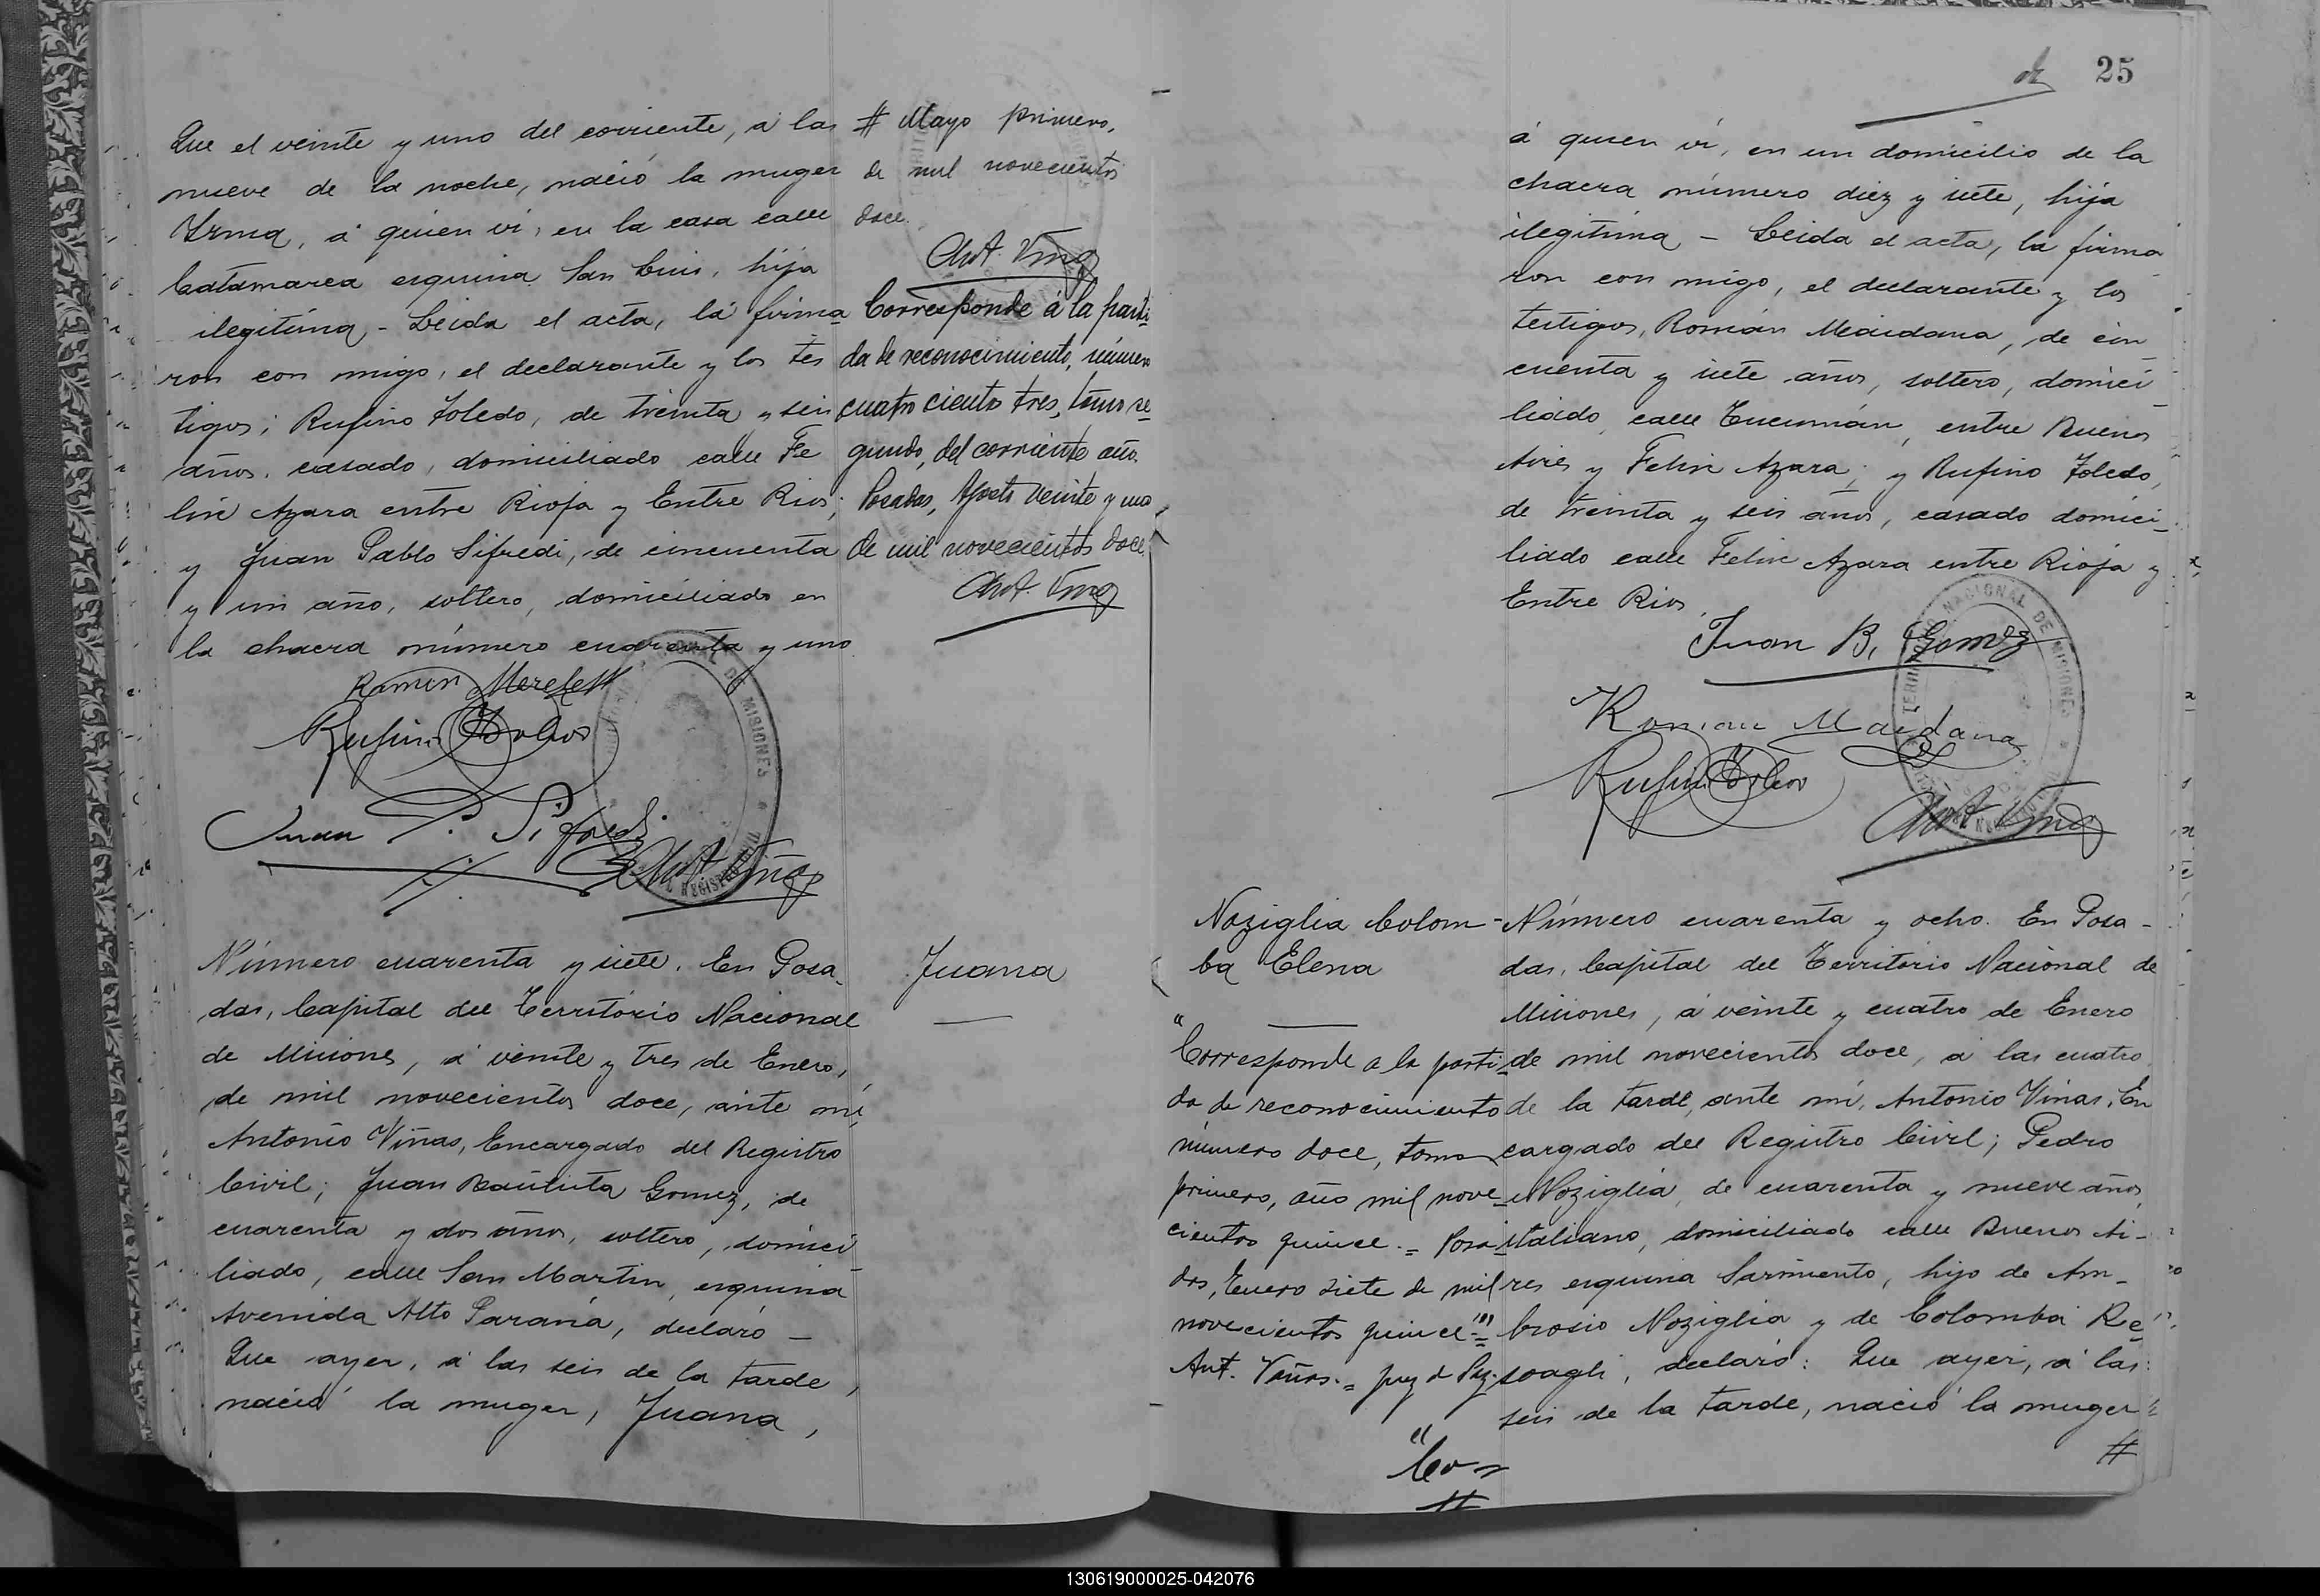 Que el veinte y uno del corriente, á las
nueve de la noche, nació la muger
Yrma, á quien ví, en la casa calle
Catamarca esquina San Luis, hija
ilegitima, - Leida el acta, la firma
ron con migo, el declarante y los tes
tigos; Rufino Toledo, de treinta y seis
años, casado, domiciliado calle Fe
lix Azara entre Rioja y Entre Rios;
y Juan Pablo Sifredi, de cincuenta
y un año, soltero, domiciliado en
la chacra número cuarenta y uno
Ramon
Rufino Toledo
Juan P. Sifredi
Ant. Viñas
# Mayo primero,
de mil novecientos
doce.
Ant. Viñas
Corresponde á la parti
da de reconocimiento, número
cuatro cientos tres, tomo se
gundo, del corriente año.
Posadas, Agosto veinte y uno
de mil novecientos doce.
Ant. Viñas
Número cuarenta y siete. En Posa
das, Capital del Territorio Nacional
de Misiones, á veinte y tres de Enero,
de mil novecientos doce, ante mí,
Antonio Viñas, Encargado del Registro
Civil; Juan Bautista Gomez, de
cuarenta y dos años, soltero, domici
liado, calle San Martin, esquina
Avenida Alto Paraná, declaró -
Que ayer, á las seis de la tarde,
nació la muger, Juana,
Juana
25
á quien ví, en un domicilio de la
chacra número diez y siete, hija
ilegitima - Leida el acta, la firma
ron con migo, el declarante y los
testigos, Román Maidana, de cin
cuenta y siete años, soltero, domici
liado, calle Tucumán, entre Buenos
Aires y Felix Azara; y Rufino Toledo,
de treinta y seis años, casado domici
liado calle Felix Azara entre Rioja y
Entre Rios.
Juan B. Gomez
Roman Maidana
Rufino Toledo
Ant. Viñas
Noziglia Colom-
ba Elena
"Corresponde a la parti
da de reconocimiento
número doce, tomo
primero, año mil nove
cientos quince. = Posa
das, Enero siete de mil
novecientos quince. =
Ant. Viñas. = Juez de Paz.
"Co-
#
Número cuarenta y ocho. En Posa-
das, Capital del Territorio Nacional de
Misiones, á veinte y cuatro de Enero
de mil novecientos doce, á las cuatro
de la tarde, ante mí, Antonio Viñas, En
cargado del Registro Civil; Pedro
Noziglia, de cuarenta y nueve años,
italiano, domiciliado calle Buenos Ai-
res esquina Sarmiento, hijo de Am-
brosio Noziglia y de Colomba Re
soagli, declaró: Que ayer, á las
seis de la tarde, nació la muger
#
130619000025-042076